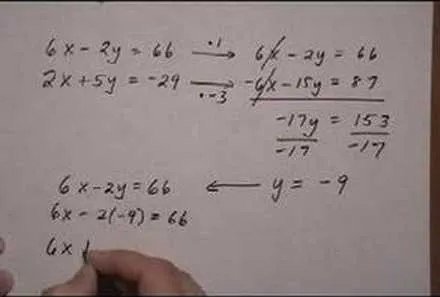 6x - 2y = 66 ·1 → 6x - 2y = 66
2x + 5y = -29 ·-3 → -6x - 15y = 87
-17y = 153
-17 -17
6x - 2y = 66 ← y = -9
6x - 2(-9) = 66
6x